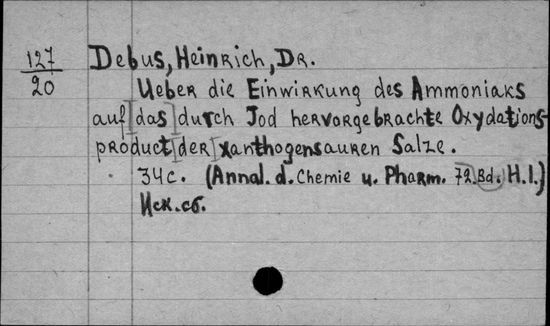 127
20
Debus, Heinrich, Dr.
Ueber die Einwirkung des Ammoniaks
auf [das] durch Jod hervorgebrachte Oxydations-
product [der] xanthogensauren Salze.
34 c. (Annal. d. Chemie u. Pharm. 72. Bd. H.I.)
Иск. сб.